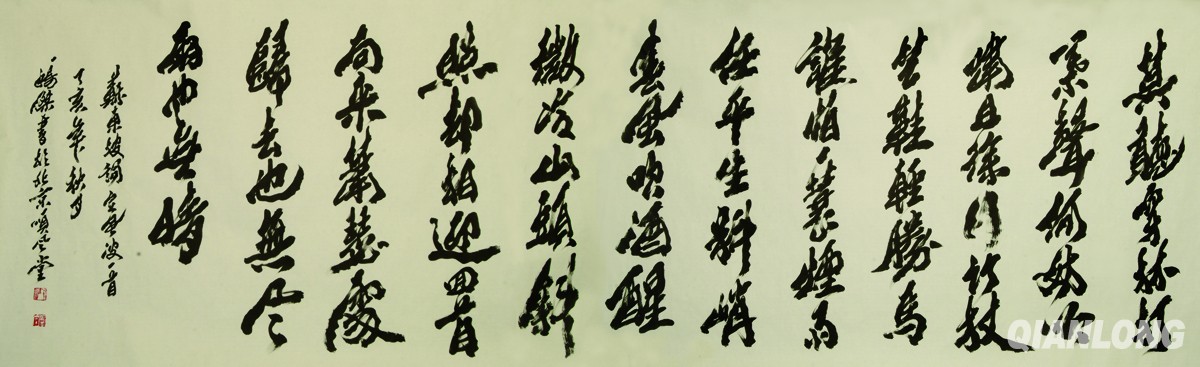 莫聽穿林打
葉聲何妨吟
嘯且徐行竹杖
芒鞋輕勝馬
誰怕一蓑煙雨
任平生料峭
春風吹酒醒
微冷山頭斜
照却相迎回首
向來蕭瑟處
歸去也無風
雨也無晴
蘇東坡詞定風波一首
丁亥年秋月
書於北京順風堂
QIANLONG